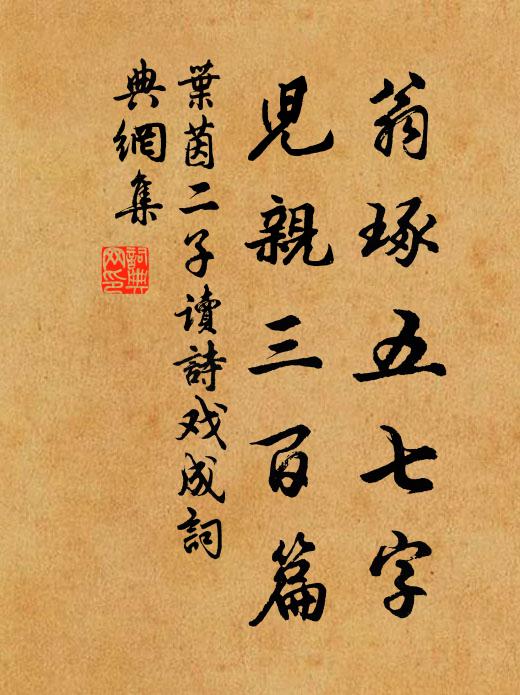 翁琢五七字
兒親三百篇
葉茵二子讀詩戏成詞
典網集
詞典网印